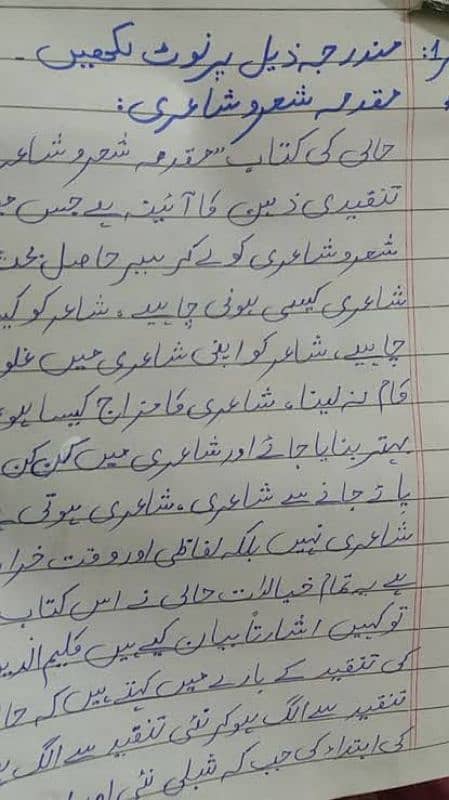 1: مندرجہ ذیل پر نوٹ لکھیں۔
مقدمہ شعر و شاعری:
حالی کی کتاب "مقدمہ شعر و شاعر
تنقیدی ذہن کا آئینہ ہے جس
شعر و شاعری کو لے کر سیر حاصل بحث
شاعری کیسی ہونی چاہیے، شاعر کو
چاہیے، شاعر کو اپنی شاعری میں غلو
کام نہ لینا، شاعری کا مزاج کیسا ہو
بہتر بنایا جائے اور شاعری میں کن کن
پائے جانے سے شاعری، شاعری ہوتی
شاعری نہیں بلکہ لفاظی اور وقت خرا
ہے یہ تمام خیالات حالی نے اس کتاب
تو کہیں اشارتاً بیان کیے ہیں کلیم الدین
کی تنقید کے بارے میں کہتے ہیں کہ حا
تنقید سے الگ ہو کر نئی تنقید سے الگ
کی ابتداء کی جب کہ شبلی نئی اور